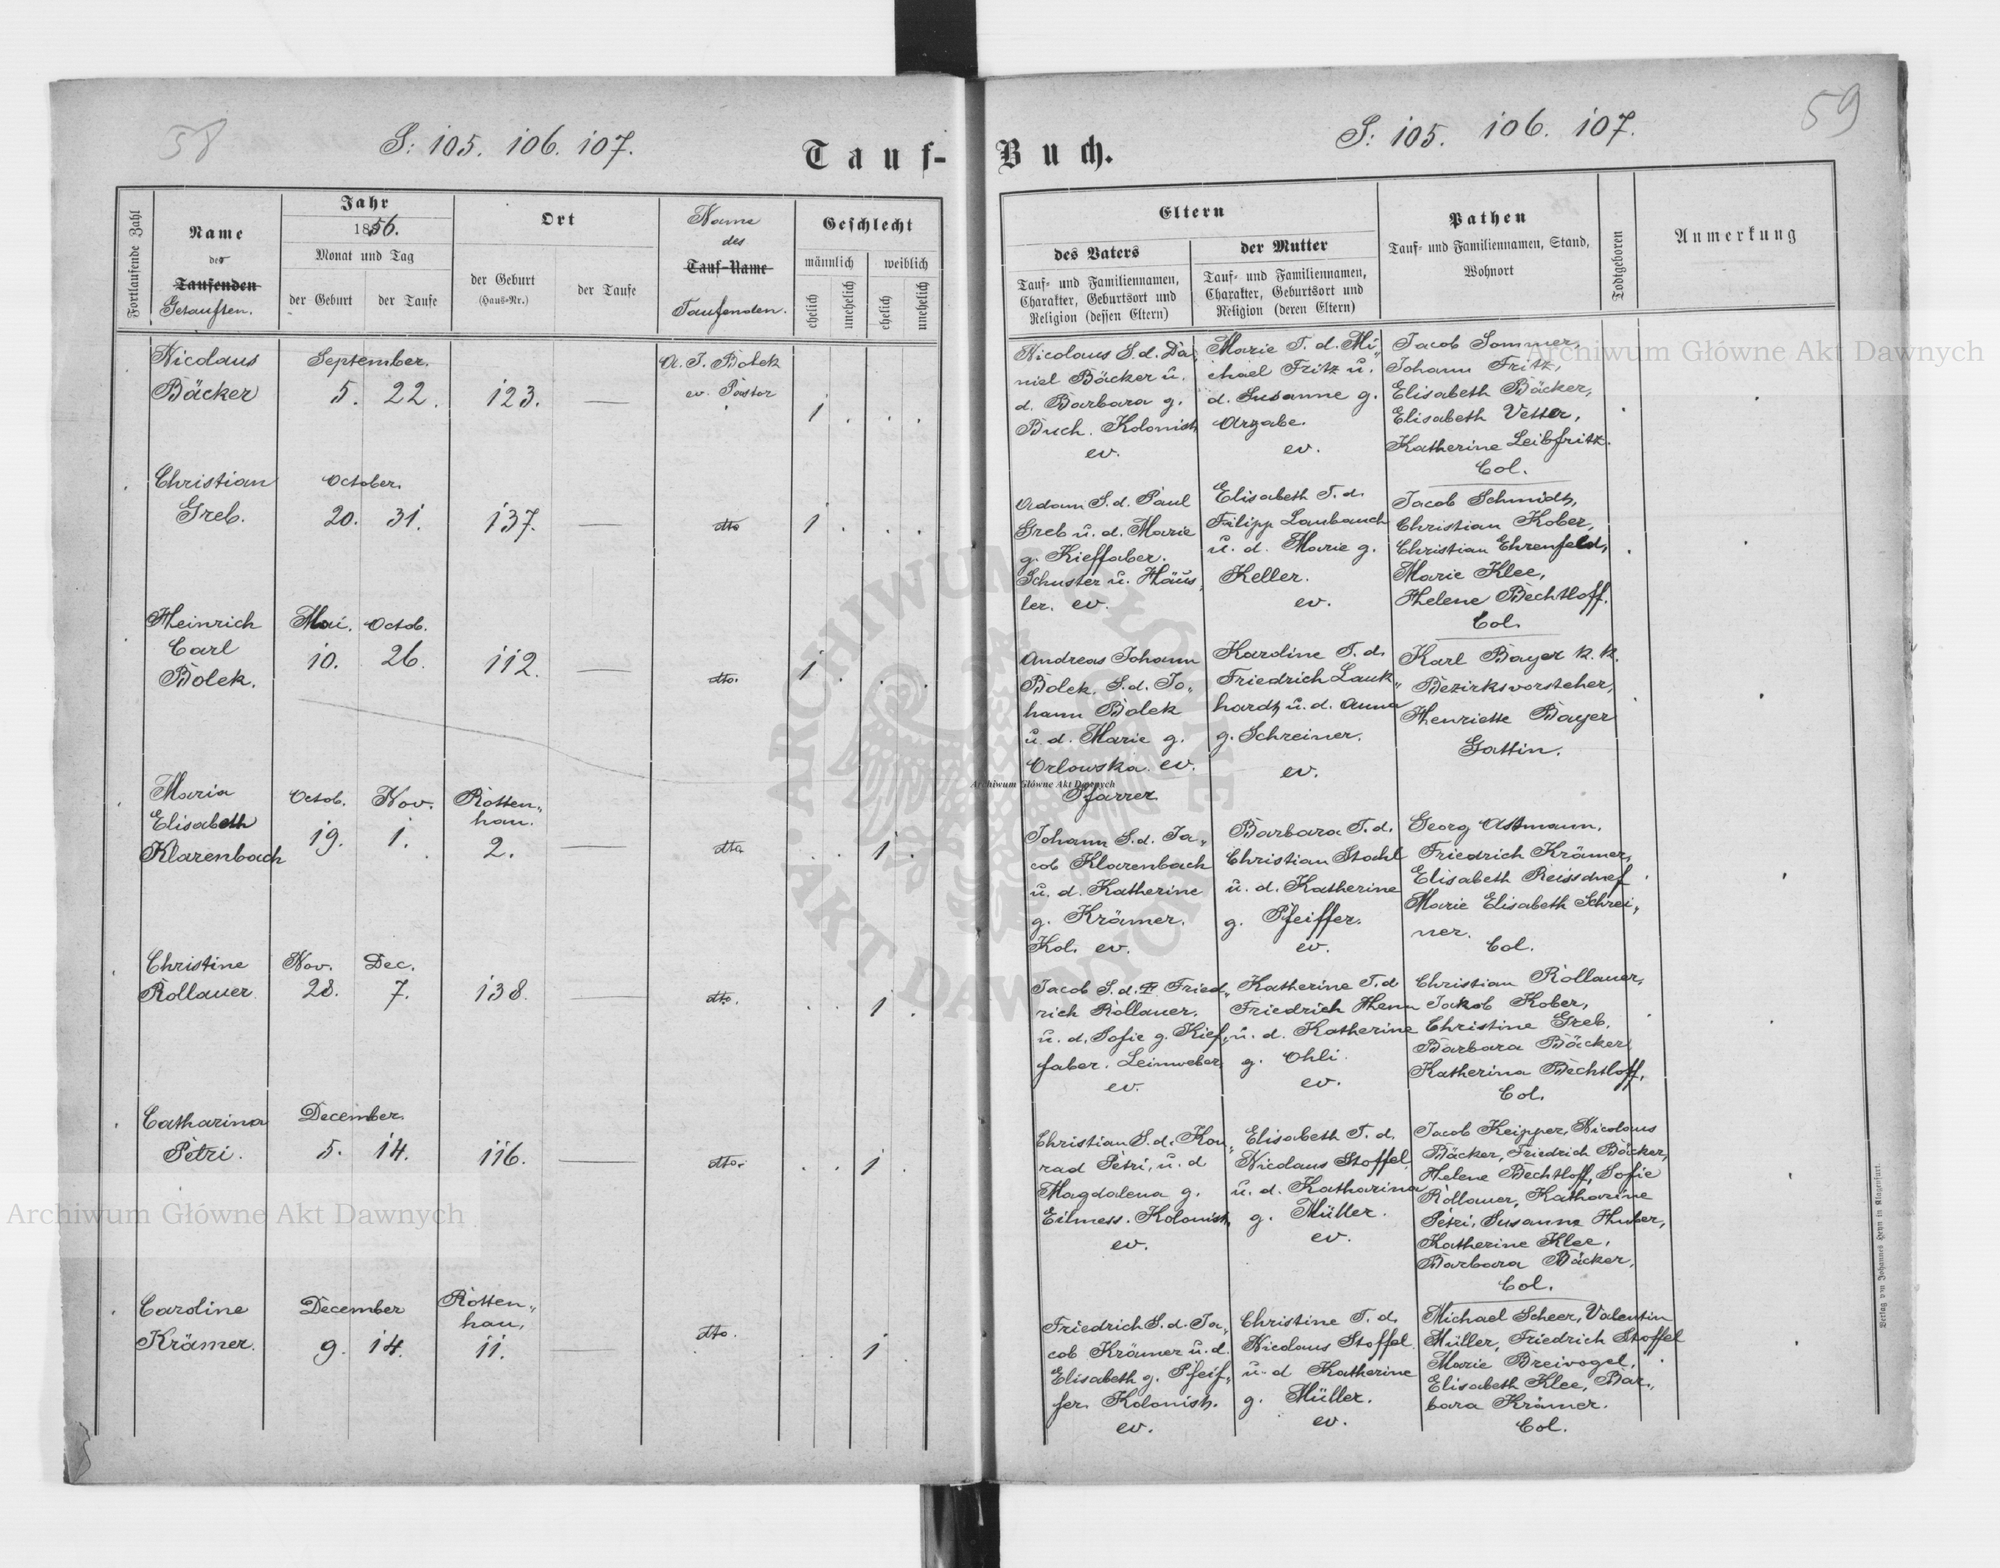 58
S: 105. 106. 107.
Tauf-
Fortlaufende Zahl
Name
des
Taufenden
Getauften.
Jahr
1856.
Monat und Tag
der Geburt
der Taufe
Ort
der Geburt
(Haus-Nr.)
der Taufe
Name
des
Tauf-Name
Taufenden.
Geschlecht
männlich
weiblich
ehelich
unehelich
ehelich
unehelich
Nicolaus
Bäcker
September.
5. 22.
123.
A. J. Bolek
ev. Pastor
1
Christian
Greb.
October.
20. 31.
137.
dto
1
Heinrich
Carl
Bolek.
Mai. Octob.
10. 26.
112.
dto.
1
Maria
Elisabeth
Klarenbach
Octob. Nov.
19. 1.
Rotten„
hau.
2.
dto
1
Christine
Rollauer
Nov. Dec.
28. 7.
138.
dto.
1
Catharina
Petri.
December.
5. 14.
116.
dto.
1
Caroline
Krämer.
December
9. 14.
Rotten„
hau.
11.
dto.
1
59
S: 105. 106. 107.
Buch.
Eltern
des Vaters
Tauf- und Familiennamen,
Charakter, Geburtsort und
Religion (dessen Eltern)
der Mutter
Tauf- und Familiennamen,
Charakter, Geburtsort und
Religion (deren Eltern)
Pathen
Tauf- und Familiennamen, Stand,
Wohnort
Todtgeboren
Anmerkung
Nicolaus S. d. Da„
niel Bäcker u.
d. Barbara g.
Buch. Kolonist
ev.
Marie T. d. Mi„
chael Fritz u.
d. Susanne g.
Argabe.
ev.
Jacob Sommer,
Johann Fritz,
Elisabeth Bäcker,
Elisabeth Vetter,
Katherine Leibfritz.
Col.
Adam S. d. Paul
Greb u. d. Marie
g. Kieffaber.
Schuster u. Häus„
ler. ev.
Elisabeth T. d.
Filipp Laubauch
u. d. Marie g.
Keller.
ev.
Jacob Schmidt,
Christian Kober,
Christian Ehrenfeld,
Marie Klee,
Helene Bechtloff.
Col.
Andreas Johann
Bolek, S. d. Jo„
hann Bolek
u. d. Marie g.
Orlowska. ev.
Pfarrer
Karoline T. d.
Friedrich Lauk„
hardt u. d. Anna
g. Schreiner.
ev.
Karl Bayer k. k.
Bezirksvorsteher,
Henriette Bayer
Gattin.
Johann S. d. Ja„
cob Klarenbach
u. d. Katherine
g. Krämer.
Kol. ev.
Barbara T. d.
Christian Stahl
u. d. Katherine
g. Pfeiffer.
ev.
Georg Assmann,
Friedrich Krämer,
Elisabeth
Marie Elisabeth Schrei„
ner.
Col.
Jacob S. d. Fried„
rich Rollauer.
u. d. Sofie g. Kief„
faber. Leinweber.
ev.
Katherine T. d
Friedrich Henn
u. d. Katherine
g. Ohli.
ev.
Christian Rollauer,
Jakob Kober,
Christine Greb.
Barbara Bäcker
Katherina Bechtloff,
Col.
Christian S. d. Kon„
rad Petri, u. d
Magdalena g.
Eilmess. Kolonist.
ev.
Elisabeth T. d.
Nicolaus Stoffel.
u. d. Katharina
g. Müller.
ev.
Jacob Keipper, Nicolaus
Bäcker, Friedrich Bäcker,
Helene Bechtloff, Sofie
Rollauer, Katharine
Petri, Susanna Huber,
Katherine Klee,
Barbara Bäcker,
Col.
Friedrich S. d. Ja„
cob Krämer u. d.
Elisabeth g. Pfeif„
fer. Kolonist.
ev.
Christine T. d.
Nicolaus Stoffel
u. d Katherine
g. Müller.
ev.
Michael Scheer, Valentin
Müller, Friedrich Stoffel
Marie Breivogel,
Elisabeth Klee, Bar„
bara Krämer.
Col.
Verlag von Johannes Heyn in Klagenfurt.
Archiwum Główne Akt Dawnych
Archiwum Główne Akt Dawnych
Archiwum Główne Akt Dawnych
ARCHIWUM GŁÓWNE AKT DAWNYCH